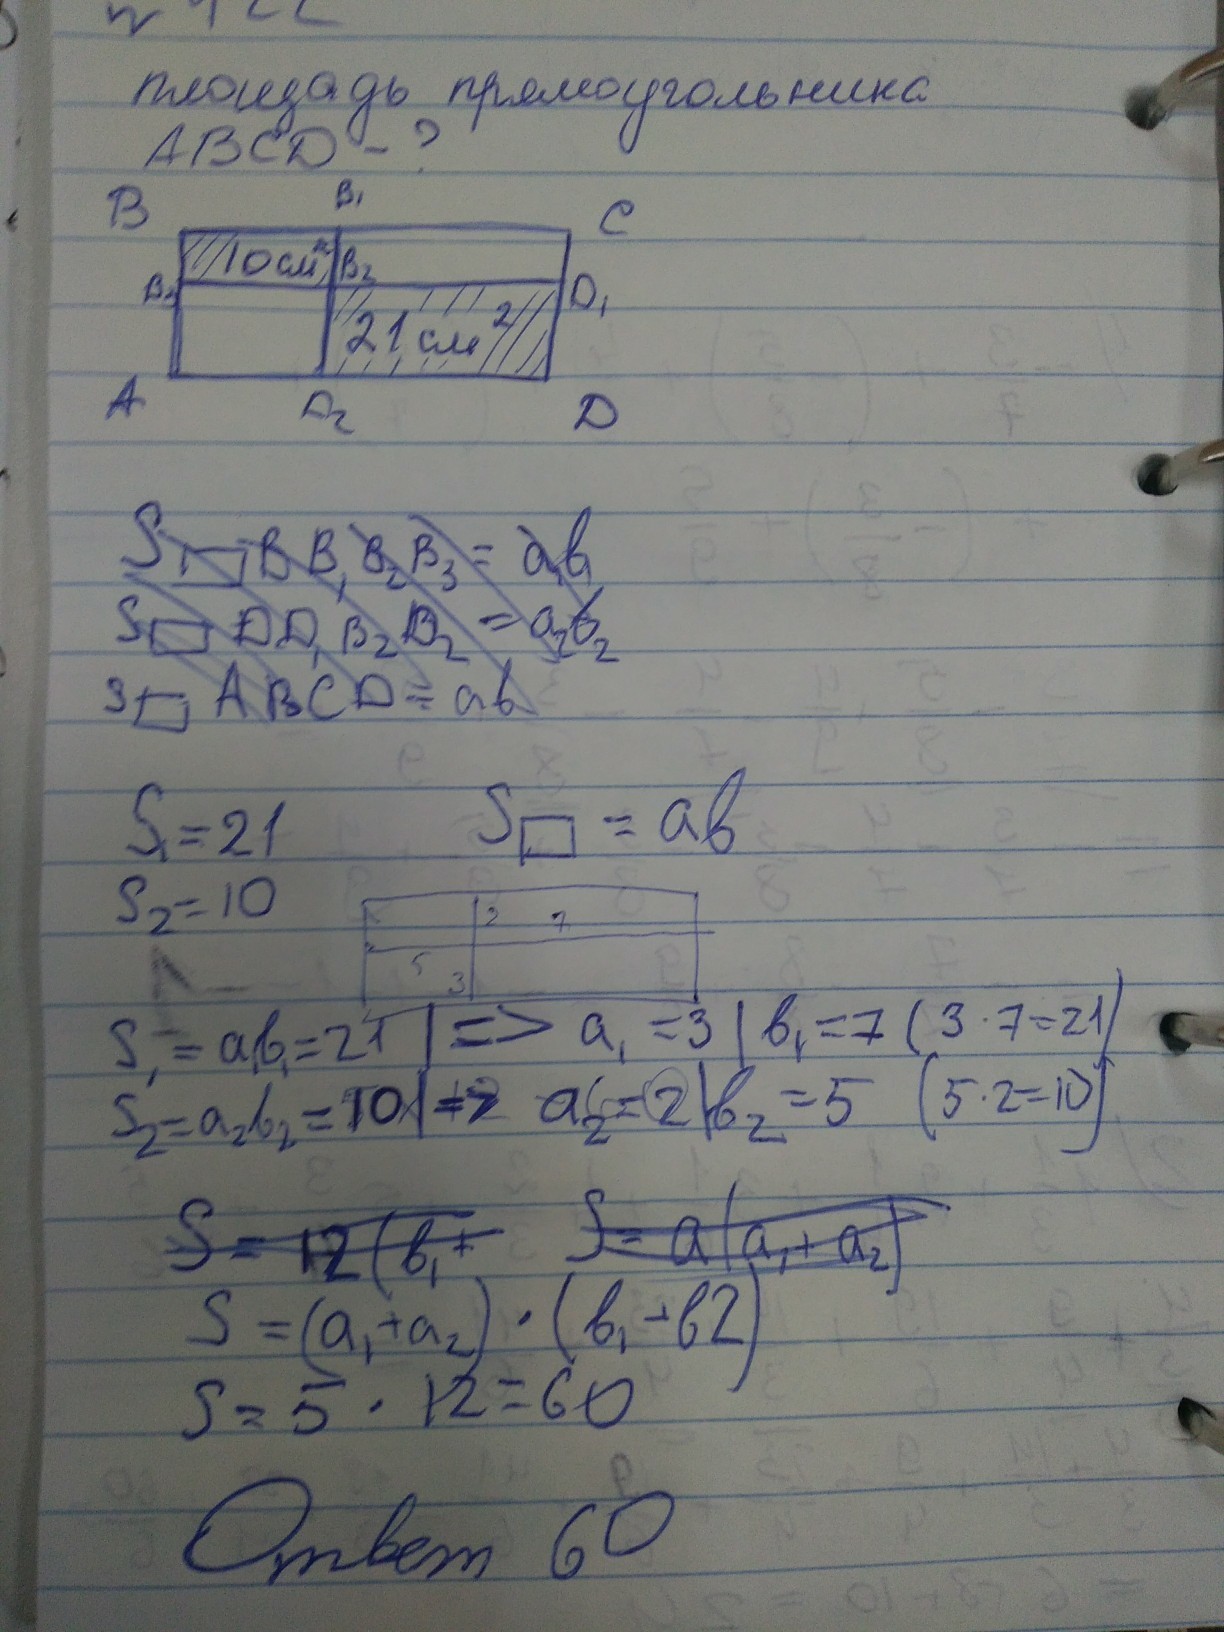 площадь прямоугольника
ABCD - ?
B B₁ C
10 см² B₂
B₃ D₁
21 см²
A D₂ D
S▭ B B₁ B₂ B₃ = a₁b₁
S▭ DD₁ B₂ D₂ = a₂b₂
S▭ ABCD = ab
S₁ = 21 S▭ = ab
S₂ = 10
2 7
5 3
S₁ = a₁b₁ = 21 | => a₁ = 3 | b₁ = 7 (3 · 7 = 21)
S₂ = a₂b₂ = 10 | => a₂ = 2 | b₂ = 5 (5 · 2 = 10)
S = 12 (b₁ + S = a (a₁ + a₂)
S = (a₁ + a₂) · (b₁ + b2)
S = 5 · 12 = 60
Ответ 60